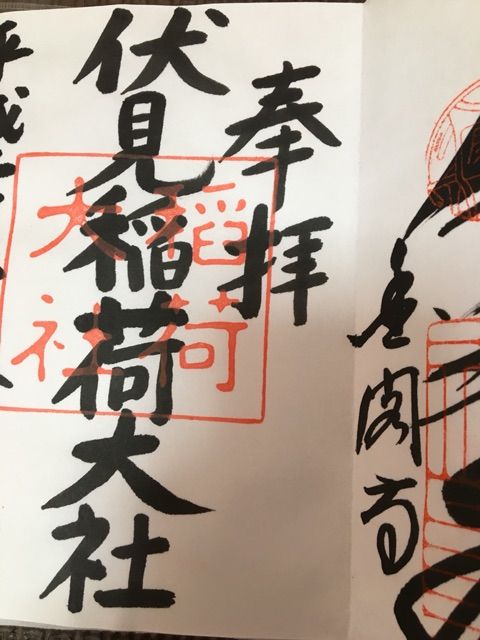 奉拝
伏見稲荷大社
稲荷
大社
平成
金閣寺